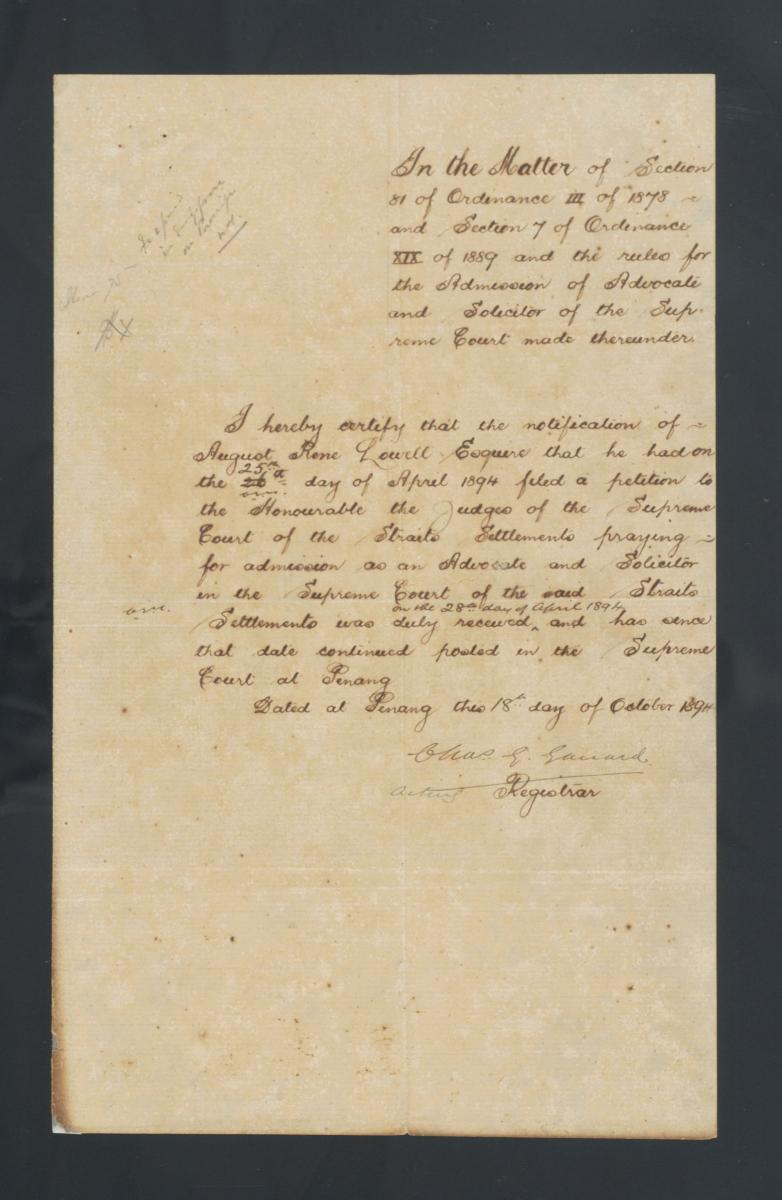 In the Matter of Section
81 of Ordinance III of 1878 ~
and Section 7 of Ordinance
XIX of 1889 and the rules for
the Admission of Advocate
and Solicitor of the Sup-
reme Court made thereunder.
I hereby certify that the notification of ~
August Rene Lowell Esquire that he had on
25th
the 26 day of April 1894 filed a petition to
the Honourable the Judges of the Supreme
Court of the Straits Settlements praying ~
for admission as an Advocate and Solicitor
in the Supreme Court of the said Straits
on the 28th day of April 1894
Settlements was duly received, and has since
that date continued posted in the Supreme
Court at Penang
Dated at Penang this 18th day of October 1894
Chas G. Garrard
Acting Registrar